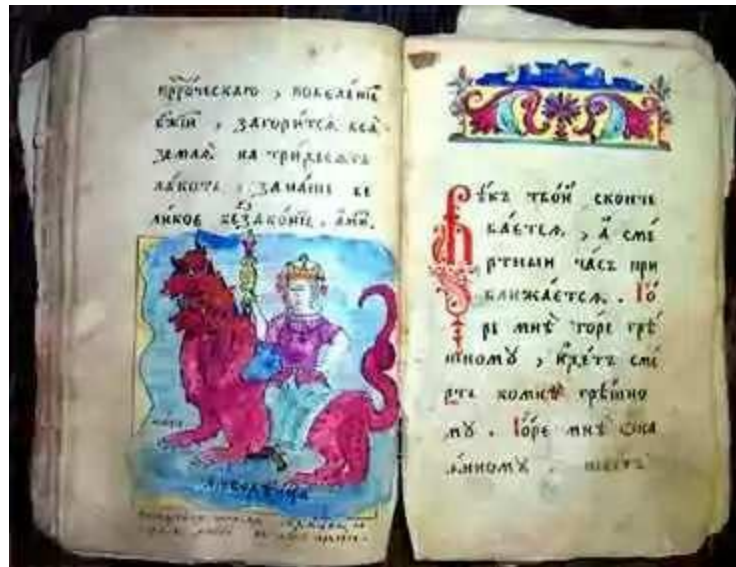 прⷪ҇роческаго , повелѣнїе
бж҃їй , загорится всѧ́
землѧ̀ на три́десѧть
ла́коть , за на́ше ве
ли́кое беззако́нїе , а҆ми́.
любодѣйца
Вѣкъ тво́й сконче
ва́етсѧ , а҆ сме́
ртный ча́съ при
ближа́етсѧ . Го́
ре мнѣ̀ го́ре грѣ́
шномꙋ , и҆де́тъ сме́
рть комнѣ̀ грѣ́шно
мꙋ . Го́ре мнѣ̀ ѻ҆ка
ѧ́нномꙋ .